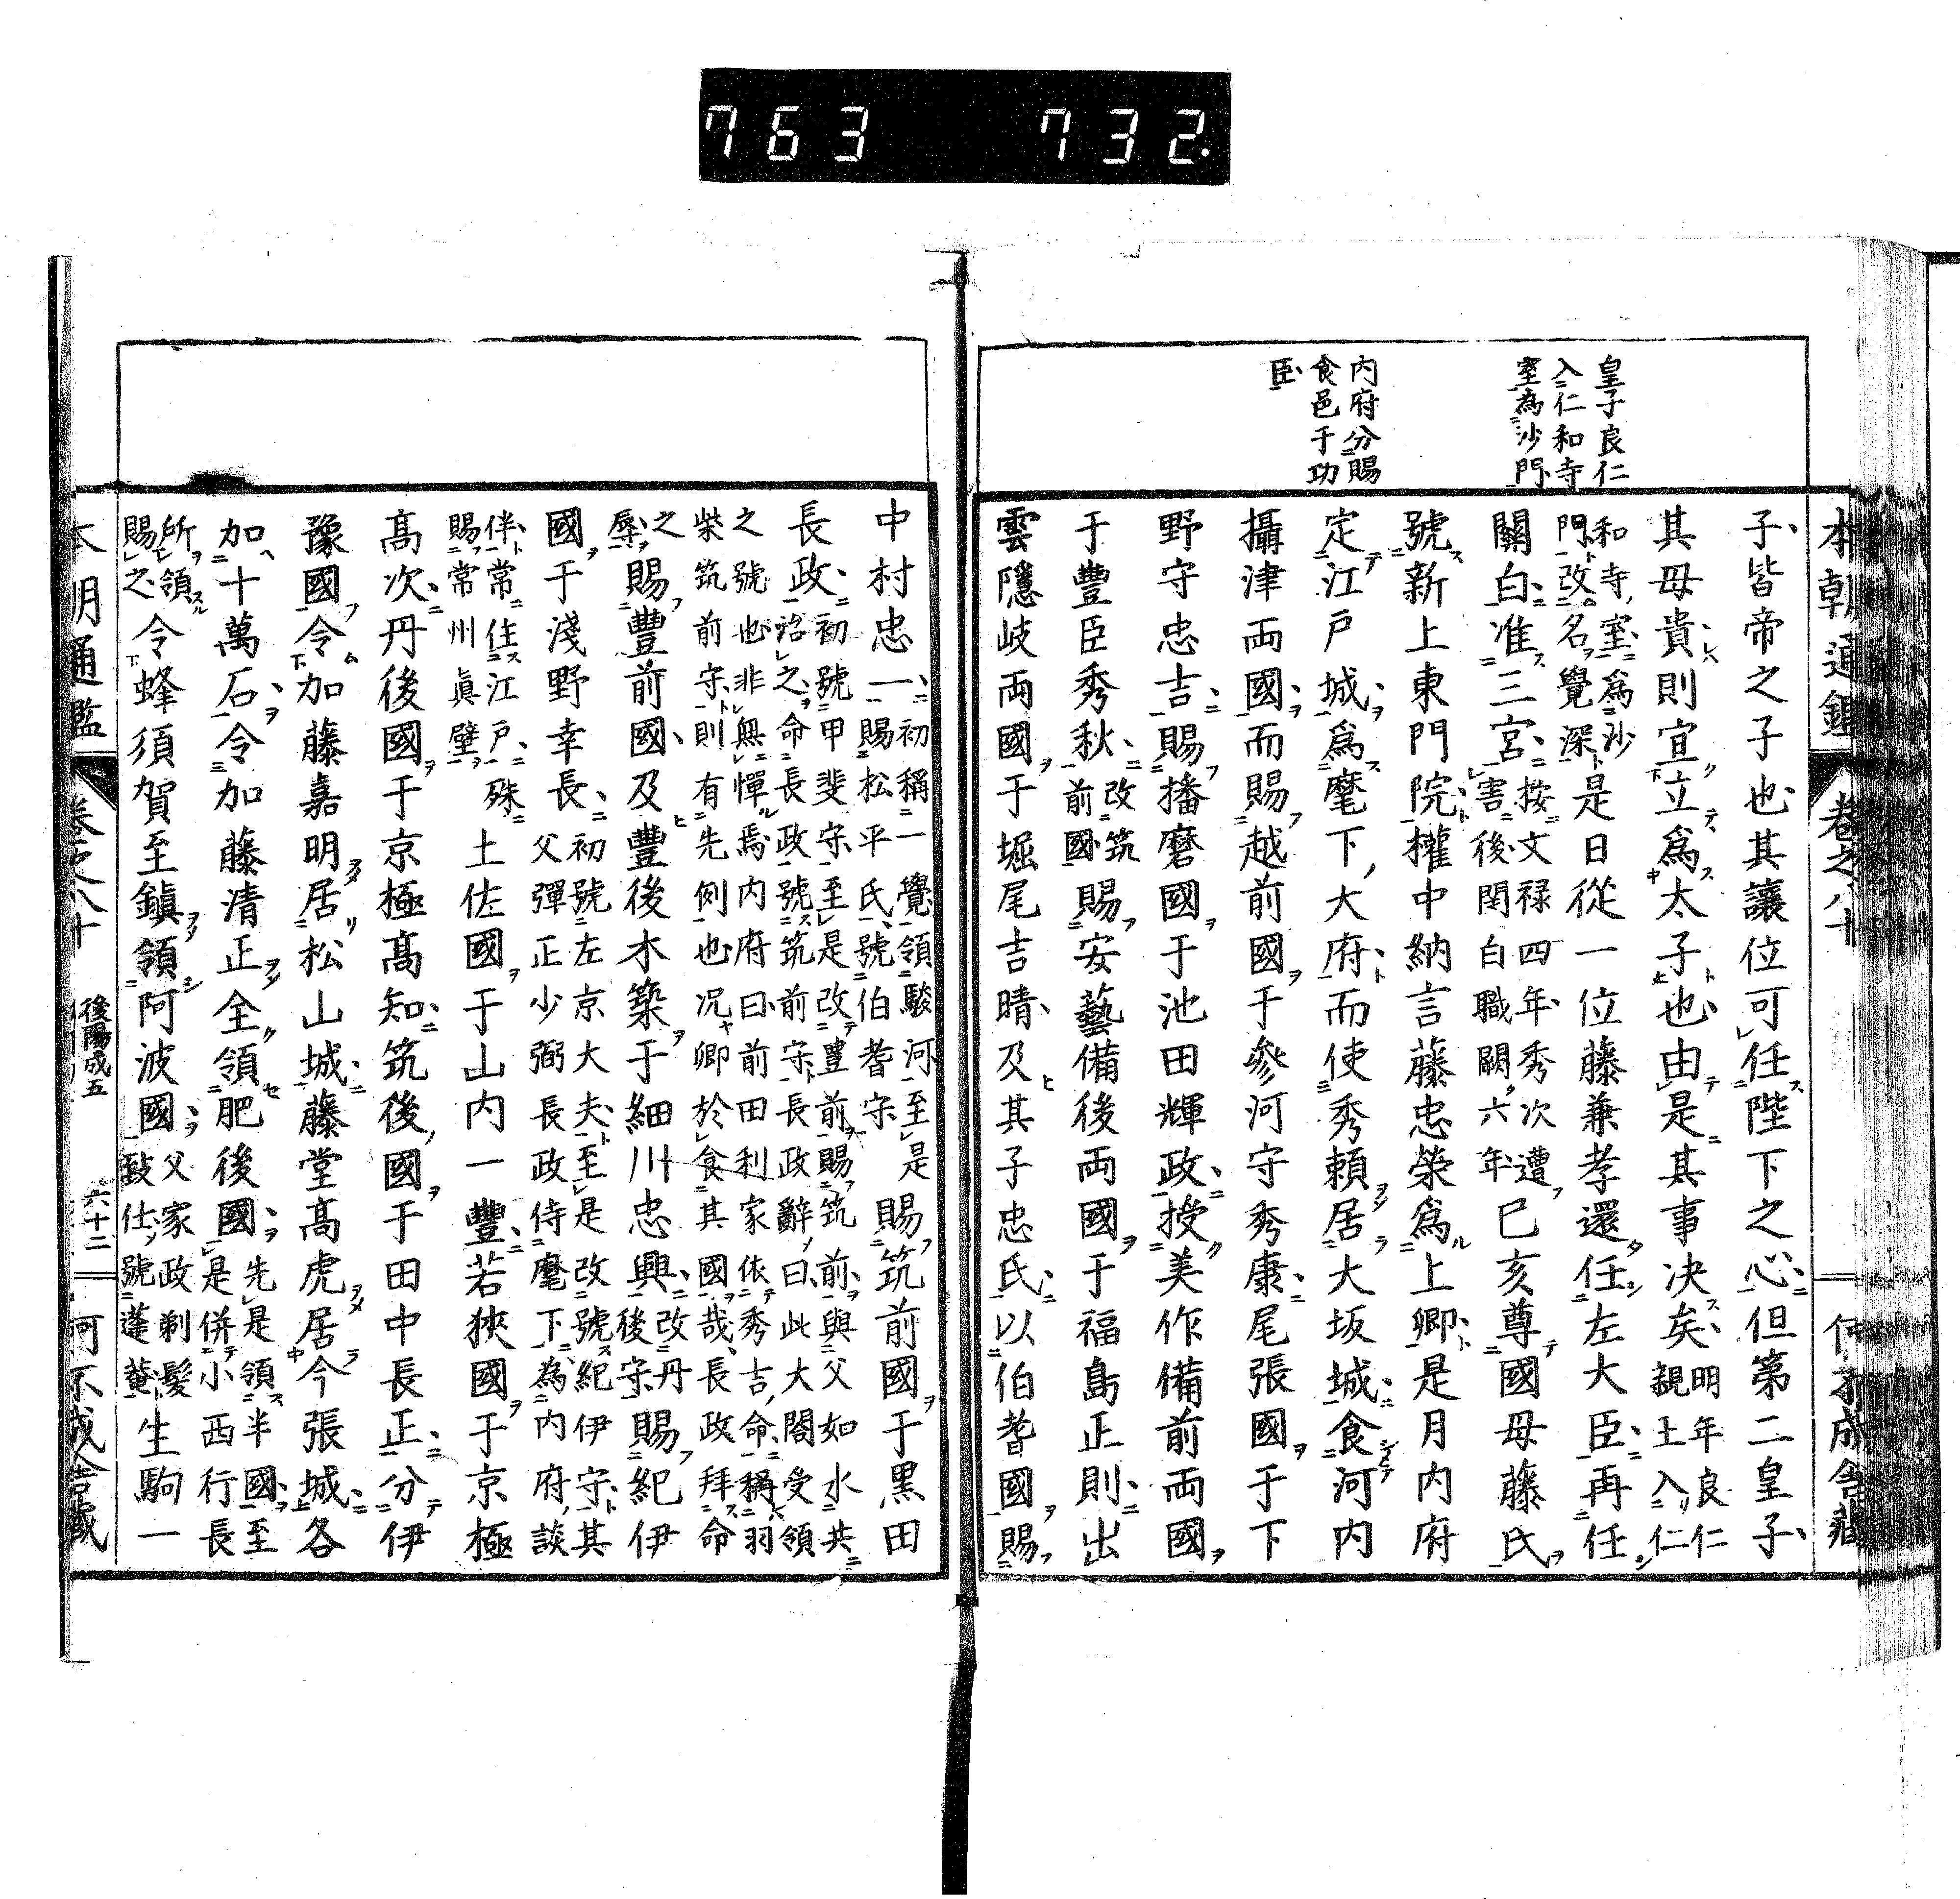 763 732.
皇子良仁
入仁和寺
室為沙門
内府分賜
食邑于功
臣
本朝通鑑 卷之八十
子皆帝之子也其讓位可任陛下之心但第二皇子
其母貴則宜立爲太子也由是其事决矣明年良仁
親王入仁
和寺室爲沙
門改名覺深是日從一位藤兼孝還任左大臣再任
關白准三宮按文禄四年秀次遭
害後関白職闕六年己亥尊國母藤氏
號新上東門院權中納言藤忠榮爲上卿是月内府
定江戸城爲麾下大府而使秀頼居大坂城食河内
攝津両國而賜越前國于參河守秀康尾張國于下
野守忠吉賜播磨國于池田輝政授美作備前両國
于豊臣秀秋改筑
前國賜安藝備後両國于福島正則出
雲隱岐両國于堀尾吉晴及其子忠氏以伯耆國賜
中村忠一初稱一覺領駿河至是
賜松平氏號伯耆守賜筑前國于黒田
長政初號甲斐守至是改豊前賜筑前與父如水共
詔之命長政號筑前守長政辭曰此大閤受領
之號也非無憚焉内府曰前田利家依秀吉命稱羽
柴筑前守則有先例也况卿於食其國哉長政拜命
之
辱賜豊前國及豊後木築于細川忠興改丹
後守賜紀伊
國于淺野幸長初號左京大夫至是改號紀伊守其
父彈正少弼長政侍麾下為内府談
伴常住江戸殊
賜常州眞壁土佐國于山内一豊若狹國于京極
髙次丹後國于京極髙知筑後國于田中長正分伊
豫國令加藤嘉明居松山城藤堂髙虎居今張城各
加十萬石令加藤清正全領肥後國先是領半國至
是併小西行長
所領
賜之令蜂須賀至鎭領阿波國父家政剃髪
致仕號蓬菴生駒一
本朝通鑑 卷之八十 後陽成五 六十二